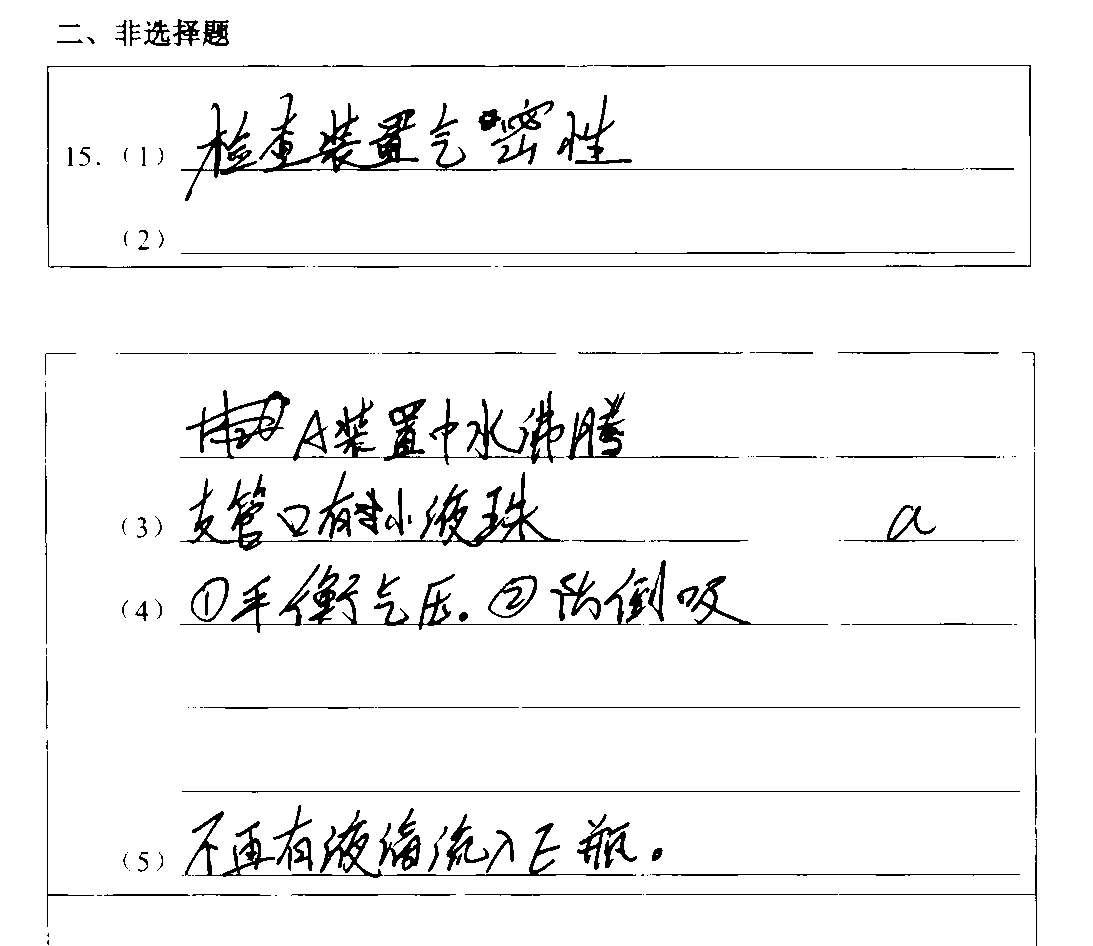 二、非选择题
15.（1）检查装置气密性
（2）
A装置中水沸腾
（3）支管口有小液珠 a
（4）①平衡气压.②防倒吸
（5）不再有液滴流入E瓶。